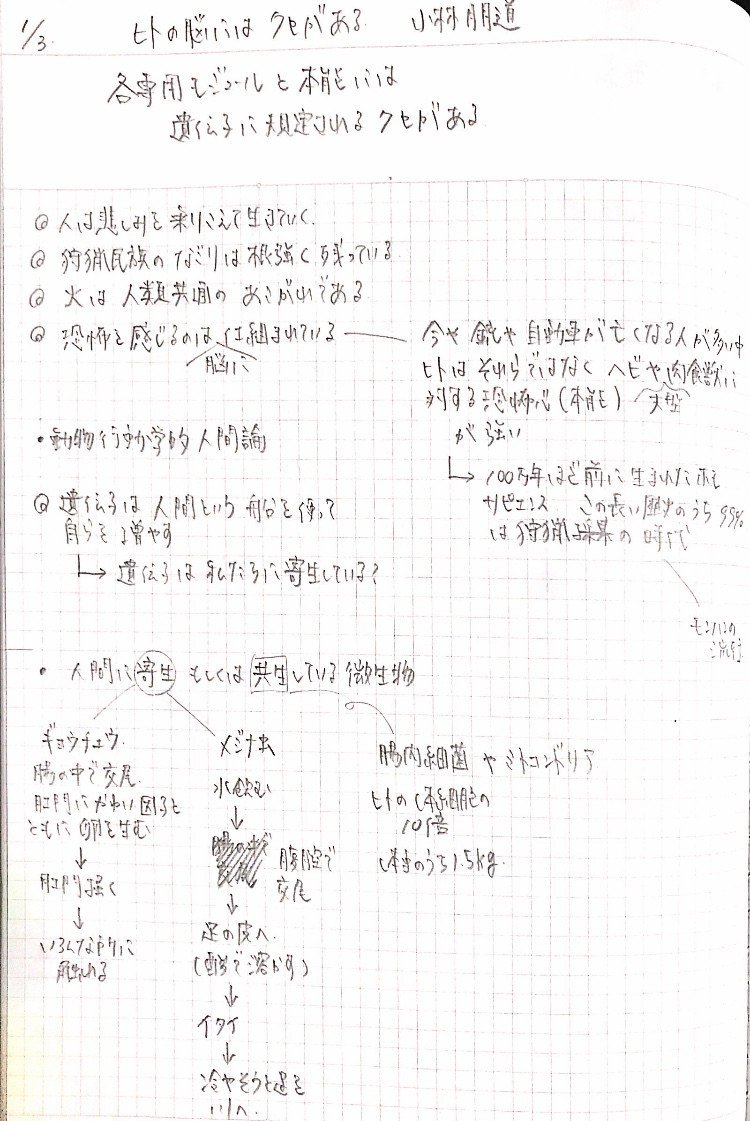 1/3.
ヒトの脳にはクセがある 小林朋道
各専用モジュールと本能には
遺伝子に規定されるクセがある
◎ 人は悲しみを乗りこえて生きていく
◎ 狩猟民族のなごりは根強く残っている
◎ 火は人類共通のあこがれである
◎ 恐怖を感じるのは仕組まれている
脳に
今や銃や自動車が亡くなる人が多い中
ヒトはそれらではなくヘビや肉食獣に
大型
対する恐怖心(本能)
が強い
↳ 100万年ほど前に生まれたホモ
サピエンス この長い歴史のうち99%
は狩猟採集の時代
モンハンの
流行
・動物行動学的人間論
◎ 遺伝子は人間という舟を使って
自らを増やす
↳ 遺伝子は私たちに寄生している?
・人間に寄生もしくは共生している微生物
ギョウチュウ
腸の中で交尾
肛門にかゆい因子と
ともに卵を生む
↓
肛門掻く
↓
いろんな所に
触れる
メジナ虫
水飲む
↓
腹腔で
交尾
↓
足の皮へ
(酸で溶かす)
↓
イタイ
↓
冷やそうと足を
川へ
腸内細菌やミトコンドリア
ヒトの体細胞の
10倍
体重のうち1.5kg